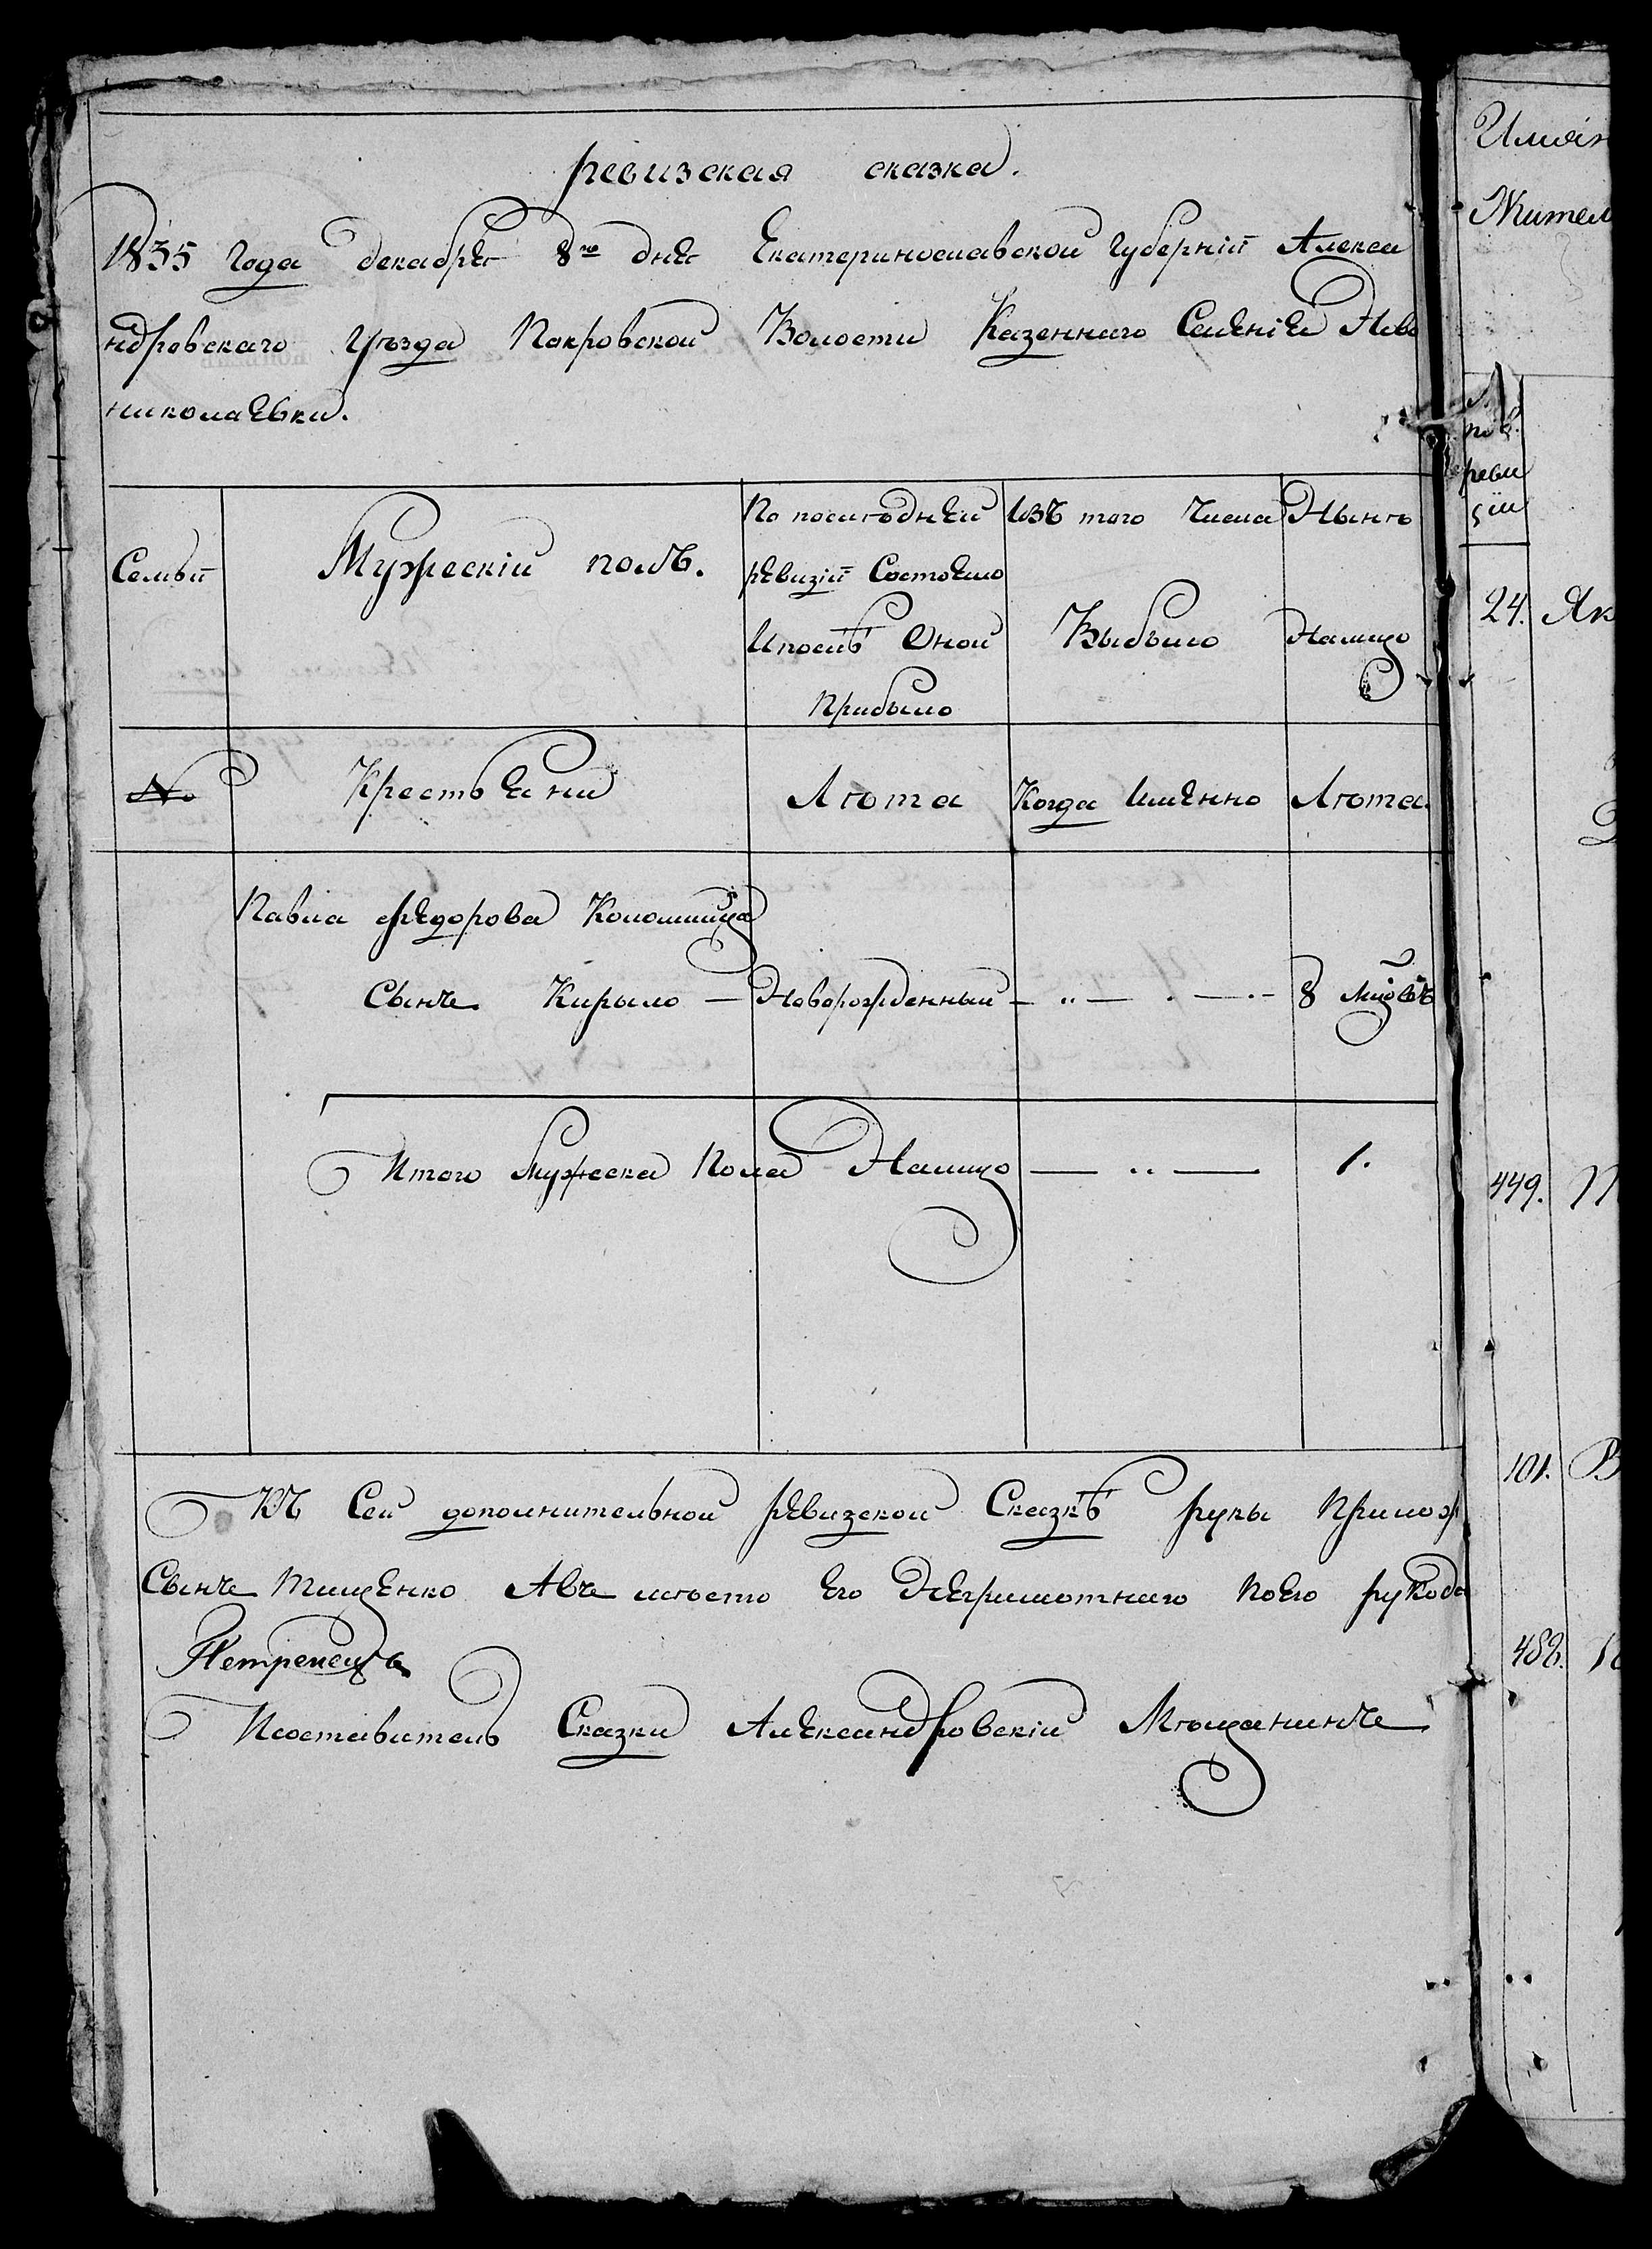 ревизская сказка.
1835 года декабря 8го дня Екатеринославской губерніи Алекса
ндровскаго уѣзда Покровской Волости Казеннаго Селенія Ново
николаевки.
Семьи
Мужескій полъ.
По послѣдней
ревизіи Состояло
и послѣ Оной
Прибыло
Изъ того Числа
Выбыло
Нынѣ
Налицо
№
Крестьяни
Лѣта
Когда Именно
Лѣта
Павла Федорова Коломийца
Сынъ Кирыло — Новорожденный — 8 мцовъ
Итого Мужеска Пола Налицо — 1.
Къ Сей дополнительной ревизской Сказкѣ руки Прилож
Сынъ Тищенко Авъ мѣсто Его Неграмотнаго поего рукода
Петренецъ
Исоставитель Сказки Александровскій Мѣщанинъ
Имѣн
Жител
по 8.
реви
зіи
24. Як
449. П
101. В
458.